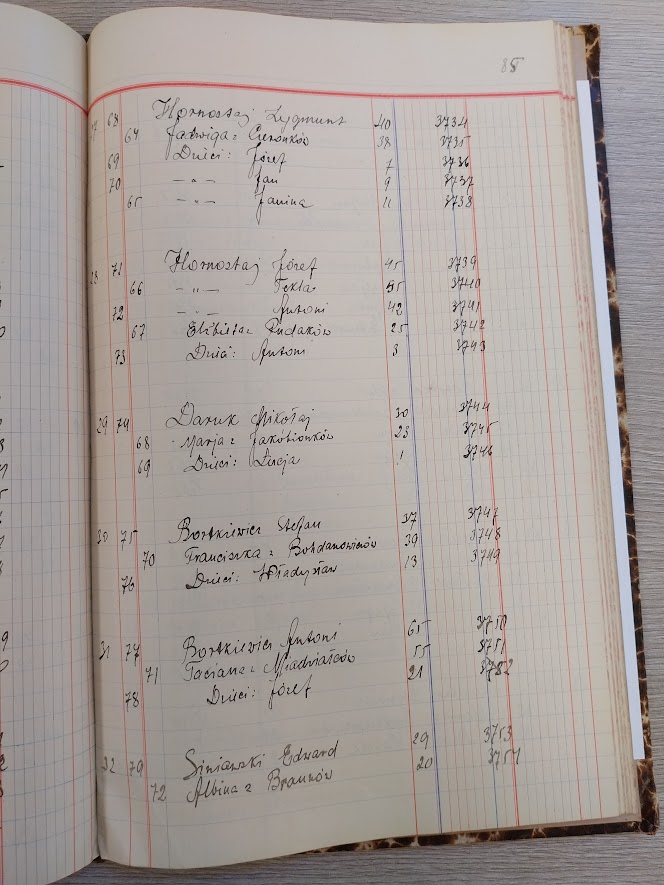 85
27 68 Hornostaj Zygmunt 40 3734
64 Jadwiga z 38 3735
69 Dzieci: Józef 7 3736
70 — " — Jan 9 3737
65 — " — Janina 11 3738
28 71 Hornostaj Józef 45 3739
66 — " — Tekla 35 3740
72 — " — Antoni 42 3741
67 Elżbieta z Rudaków 25 3742
73 Dzieci: Antoni 3 3743
29 74 Daruk Mikołaj 30 3744
68 Marja z Jakobionków 23 3745
69 Dzieci: Łucja 1 3746
30 75 Bortkiewicz Stefan 37 3747
70 Franciszka z Bohdanowiczów 39 3748
76 Dzieci: Władysław 13 3749
31 77 Bortkiewicz Antoni 65 3750
71 Tacjana z 55 3751
78 Dzieci: Józef 21 3752
32 79 Siniawski Edward 29 3753
72 Albina z Braunów 20 3754